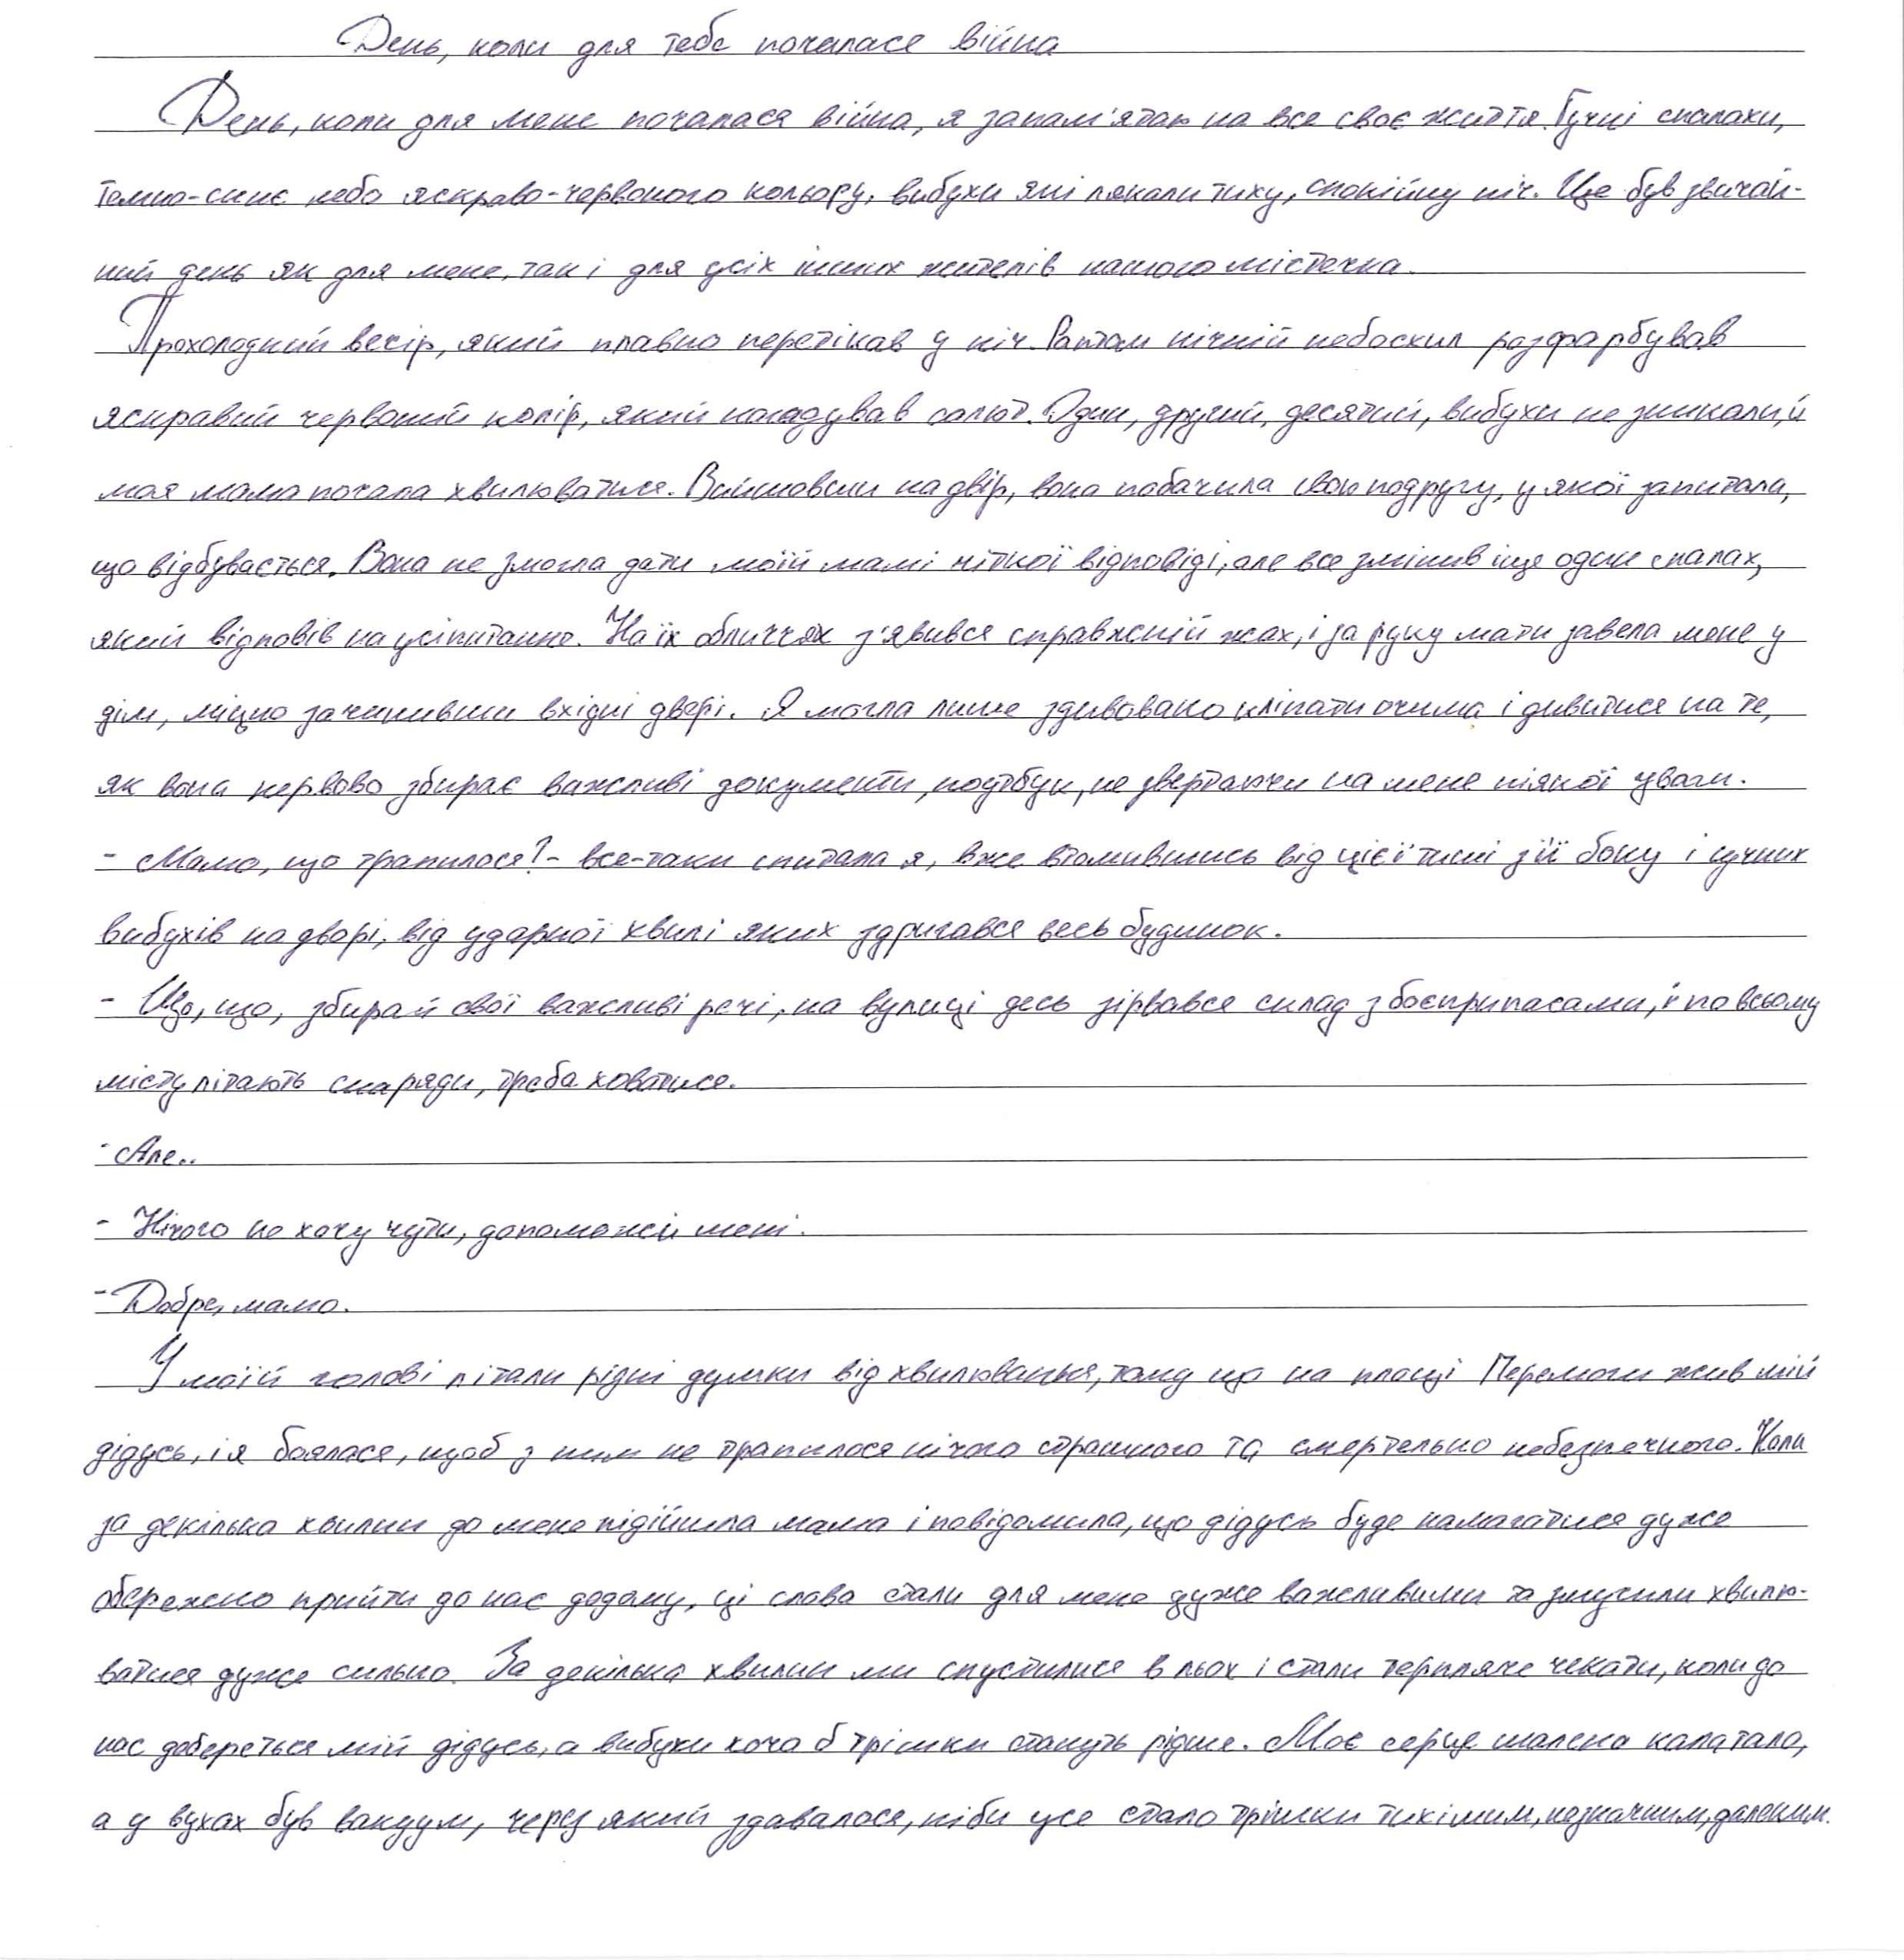 День, коли для тебе почалася війна
День, коли для мене почалася війна, я запам'ятаю на все своє життя. Гучні спалахи,
темно-синє небо яскраво-червоного кольору, вибухи які лякали тиху, спокійну ніч. Це був звичай-
ний день як для мене, так і для усіх інших жителів нашого містечка.
Прохолодний вечір, який плавно перетікав у ніч. Раптом нічний небосхил розфарбував
яскравий червоний колір, який нагадував салют. Один, другий, десятий, вибухи не зникали, й
моя мама почала хвилюватися. Вийшовши на двір, вона побачила свою подругу, у якої запитала,
що відбувається. Вона не змогла дати моїй мамі чіткої відповіді, але все змінив іще один спалах,
який відповів на усі питання. На їх обличчях з'явився справжній жах, і за руку мати завела мене у
дім, міцно зачинивши вхідні двері. Я могла лише здивовано кліпати очима і дивитися на те,
як вона нервово збирає важливі документи, ноутбук, не звертаючи на мене ніякої уваги.
- Мамо, що трапилося? - все-таки спитала я, вже втомившись від цієї тиші з її боку і гучних
вибухів на дворі, від ударної хвилі яких здригався весь будинок.
- Що, що, збирай свої важливі речі, на вулиці десь зірвався склад з боєприпасами, й по всьому
місту літають снаряди, треба ховатися.
- Але..
- Нічого не хочу чути, допоможи мені.
- Добре, мамо.
У моїй голові літали різні думки від хвилювання, тому що на площі Перемоги жив мій
дідусь, і я боялася, щоб з ним не трапилося нічого страшного та смертельно небезпечного. Коли
за декілька хвилин до мене підійшла мама і повідомила, що дідусь буде намагатися дуже
обережно прийти до нас додому, ці слова стали для мене дуже важливими та змусили хвилю-
ватися дуже сильно. За декілька хвилин ми спустилися в льох і стали терпляче чекати, коли до
нас добереться мій дідусь, а вибухи хоча б трішки стануть рідше. Моє серце шалено калатало,
а у вухах був вакуум, через який здавалося, ніби усе стало трішки тихішим, незначним, далеким.